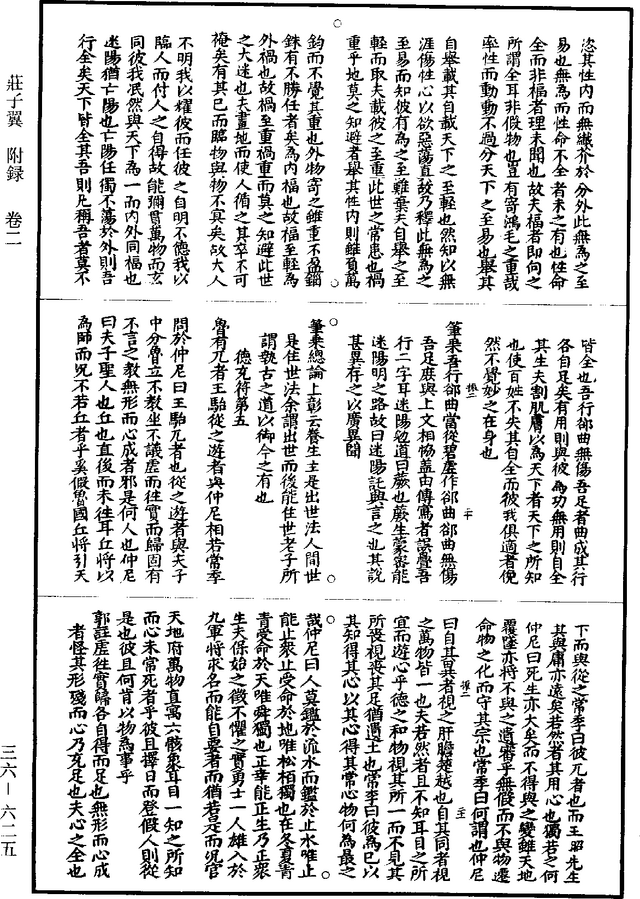 恣其性內而無纖芥於分外此無為之至
易也無為而性命不全者未之有也性命
全而非福者理未聞也故夫福者即向之
所謂全耳非假物也豈有寄鴻毛之重哉
率性而動動不過分天下之至易也舉其
自舉載其自載天下之至輕也然知以無
涯傷性心以欲惡蕩真故乃釋此無為之
至易而知彼有為之至難棄夫自舉之至
輕而取夫載彼之至重此世之常患也禍
重乎地莫之知避者舉其性內則雖負萬
鈞而不覺其重也外物寄之雖重不盈錙
銖有不勝任者矣為內福也故福至輕為
外禍也故禍至重禍重而莫之知避此世
之大迷也夫畫地而使人循之其卒不可
掩矣有其已而臨物與物不冥矣故大人
不明我以耀彼而任彼之自明不德我以
臨人而付人之自得故能彌貫萬物而玄
同彼我泯然與天下為一而內外同福也
迷陽猶亡陽也亡陽任獨不蕩於外則吾
行全矣天下皆全其吾則凡稱吾者莫不
皆全也吾行郤曲無傷吾足者曲成其行
各自足矣有用則與彼為功無用則自全
其生夫割肌膚以為天下者天下之所知
也使百姓不失其自全而彼我俱適者俛
然不覺妙之在身也
筆乘吾行郤曲當從碧虛作郤曲郤曲無傷
吾足庶與上文相協蓋由傳寫者誤疊吾
行二字耳迷陽勉道曰蕨也蕨生蒙密能
迷陽明之路故曰迷陽託與言之也其說
甚異存之以廣異聞
筆乘總論上彰云養生主是出世法人間世
是住世法余謂出世而後能住世老子所
謂執古之道以御今之有也
德充符第五
魯有兀者王駘從之遊者與仲尼相若常季
問於仲尼曰王駘兀者也從之遊者與夫子
中分魯立不教坐不議虛而往實而歸固有
不言之教無形而心成者邪是何人也仲尼
曰夫子聖人也丘也直後而未往耳丘將以
為師而況不若丘者乎奚假魯國丘將引天
下而與從之常季曰彼兀者也而王昭先生
其與庸亦遠矣若然者其用心也獨若之何
仲尼曰死生亦大矣而不得與之變雖天地
覆墜亦將不與之遺審乎無假而不與物遷
命物之化而守其宗也常季曰何謂也仲尼
曰自其異者視之肝膽楚越也自其同者視
之萬物皆一也夫若然者且不知耳目之所
宜而遊心乎德之和物視其所一而不見其
所畏視喪其足猶遺土也常季曰彼為已以
其知得其心以其心得其常心物何為最之
哉仲尼曰人莫鑑於流水而鑑於止水唯止
能止眾止受命於地唯松栢獨也在冬夏青
青受命於天唯舜獨也正幸能正生乃正眾
生夫保始之徵不懼之實勇士一人雄入於
九軍將求名而能自要者而猶若是而況官
天地府萬物直寓六骸象耳目一知之所知
而心未常死者乎彼且擇日而登假人則從
是也彼且何肯以物為事乎
郭註虛往實歸各自得而足也無形而心成
者怪其形殘而心乃充足也夫心之全也
莊子翼 附録 卷二
三六—六二五